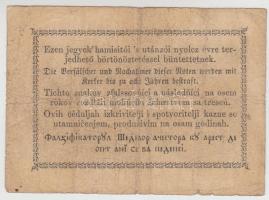 Ezen jegyek' hamisitói 's utánzói nyolcz évre ter-
jedhető börtönöztetéssel büntettetnek.
Die Verfälscher und Nachahmer dieser Noten werden mit
Kerker bis zu acht Jahren bestraft.
Tichto znakov na osem
rokov sa trescú.
Ovih céduljah izkrivitelji i spotvoritelji kazne se
utamničenjem, produživim na osam godinah.
Фалсіфікаторул ші
опт ані се ва педепсі.